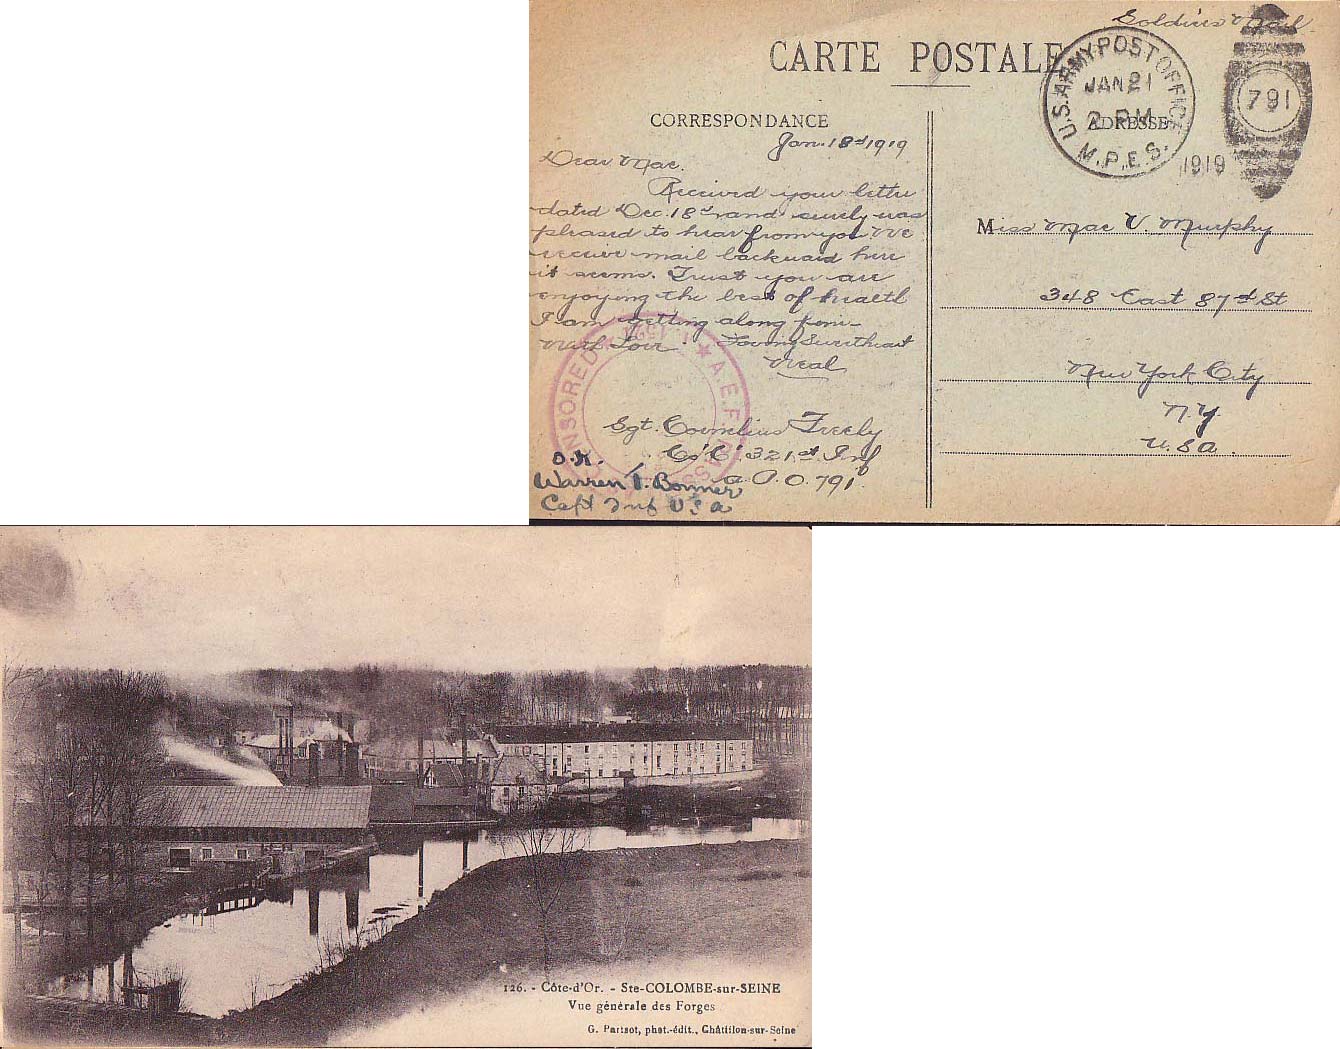 Soldiers Mail.
CARTE POSTALE
U.S. ARMY POST OFFICE
JAN 21
2 PM
M.P.E.S.
1919
791
CORRESPONDANCE
ADRESSE
Jan. 18th 1919
Dear Mae.
Received your letter
dated Dec. 18th and surely was
pleased to hear from you We
receive mail backward here
it seems. Trust you are
enjoying the best of health
I am getting along fine
With Love. Loving Sweetheart
Neal
Sgt. Cornelius Feeely
Co "C" 321st Inf
A.P.O. 791
O.K.
Warren T. Bonner
Capt Inf USA
A.E.F. PASSED CENSORED
Miss Mae V. Murphy
348 East 87th St
New York City
N.Y.
U.S.A.
126. - Côte-d'Or. - Ste-COLOMBE-sur-SEINE
Vue générale des Forges
G. Parisot, phot.-édit., Châtillon-sur-Seine